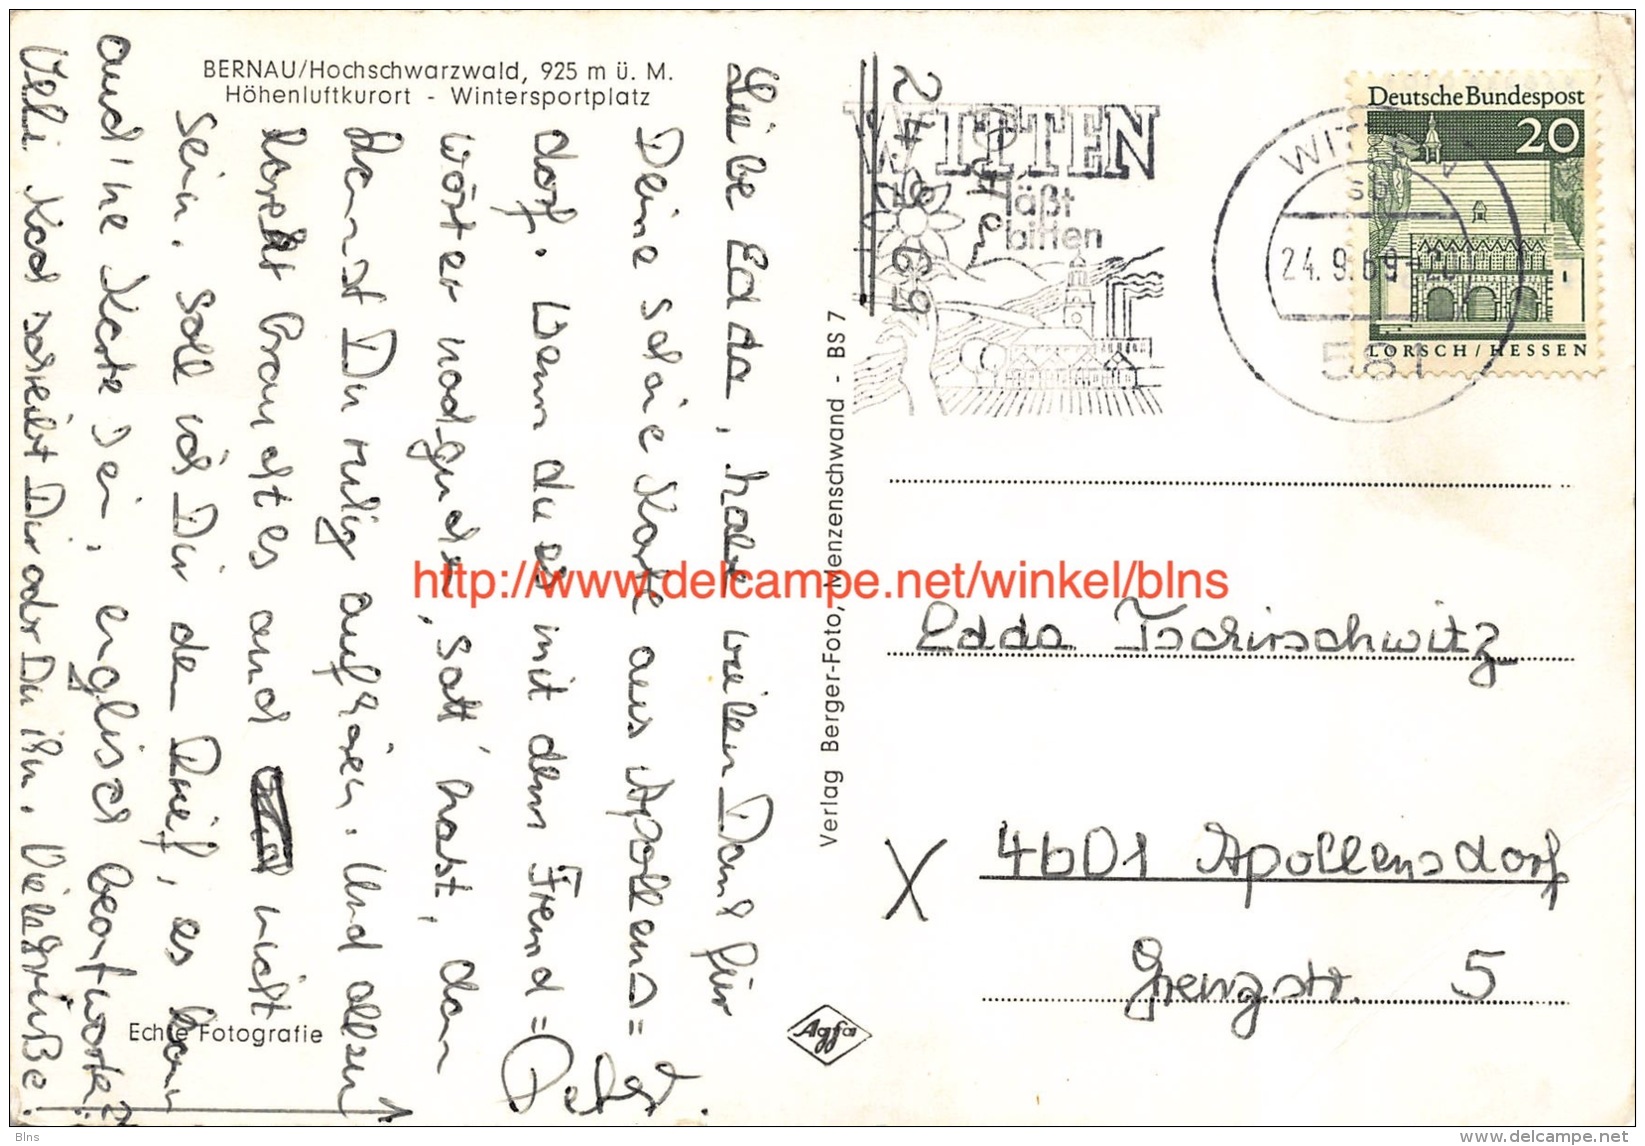 BERNAU/Hochschwarzwald, 925 m ü. M.
Höhenluftkurort - Wintersportplatz
Witten
24.9.69
Liebe Edda, habe vielen Dank für
Deine schöne Karte aus Apollens=
dorf. Wenn du es mit dem Freund=
wörter nachgucken 'satt' hast, dan
kannst Du ruhig aufhören. Und allzu
korekt brauchtes auch nicht
sein. Soll ich Dir den Brief, es kann
auch 'ne Karte sein, englisch beantworten?
Ueli Koch schreibt Dir oder Du ihm. Viele Grüße!
Peter
Echte Fotografie
Verlag Berger-Foto, Menzenschwand - BS 7
Agfa
WITTEN
läßt
bitten
WITTEN
24.9.69
581
Deutsche Bundespost
20
LORSCH/HESSEN
Edda Tschirschwitz
X 4601 Apollensdorf
Grenzstr. 5
http://www.delcampe.net/winkel/blns
Blns
www.delcampe.net